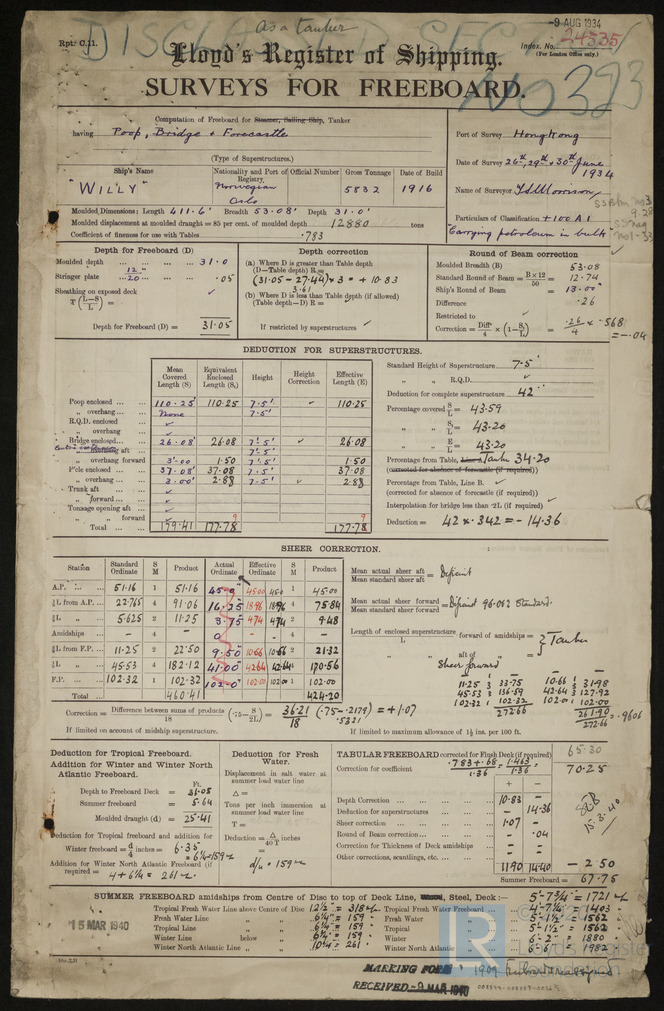 As a tanker
-9 AUG 1934
Rpt. C.11.
DISCLASSED SECY
Index. No. 24335
(For London Office only.)
Lloyd's Register of Shipping.
No 323
SURVEYS FOR FREEBOARD.
Computation of Freeboard for Steamer, Sailing Ship, Tanker
having Poop, Bridge & Forecastle
(Type of Superstructures.)
Port of Survey HongKong
Date of Survey 26th, 29th & 30th June 1934
Name of Surveyor
Particulars of Classification +100 A1
"Carrying petroleum in bulk"
Ship's Name Nationality and Port of Registry. Official Number Gross Tonnage Date of Build
"WILLY" Norwegian Oslo 5832 1916
Moulded Dimensions: Length 411.6' Breadth 53.08' Depth 31.0'
Moulded displacement at moulded draught = 85 per cent. of moulded depth 12880 tons
Coefficient of fineness for use with Tables .783
Depth for Freeboard (D)
Moulded depth ... 31.0
Stringer plate ... .05
Sheathing on exposed deck
T(L-S/L) =
Depth for Freeboard (D) = 31.05
Depth correction
(a) Where D is greater than Table depth
(D—Table depth) R =
(31.05 - 27.44) × 3 = + 10.83
3.61
(b) Where D is less than Table depth (if allowed)
(Table depth—D) R =
If restricted by superstructures
Round of Beam correction
Moulded Breadth (B) 53.08
Standard Round of Beam = B×12/50 = 12.74
Ship's Round of Beam = 13.00"
Difference .26
Restricted to
Correction = Diffce/4 × (1 - S₁/L) = .26/4 × .568 = -.04
DEDUCTION FOR SUPERSTRUCTURES.
Mean Covered Length (S) Equivalent Enclosed Length (S₁) Height Height Correction Effective Length (E)
Poop enclosed ... 110.25 110.25 7.5' 110.25
„ overhang ... None 7.5'
R.Q.D. enclosed
„ overhang
Bridge enclosed... 26.08' 26.08 7'.5' 26.08
overhang aft 7'.5'
„ overhang forward 3'.00 1.50 7'.5' 1.50
F'cle enclosed ... 37.08' 37.08 7.5' 37.08
„ overhang ... 3.00' 2.88 7.5' 2.88
Trunk aft ...
„ forward ...
Tonnage opening aft ...
„ „ forward
Total ... 179.41 177.78 177.78
Standard Height of Superstructure 7.5'
„ „ R.Q.D.
Deduction for complete superstructure 42"
Percentage covered S/L = 43.59
„ „ S₁/L = 43.20
„ „ E/L = 43.20
Percentage from Table, Line A Tanker 34.20
(corrected for absence of forecastle (if required))
Percentage from Table, Line B.
(corrected for absence of forecastle (if required))
Interpolation for bridge less than .2L (if required)
Deduction = 42 × .342 = - 14.36
SHEER CORRECTION.
Station Standard Ordinate S M Product Actual Ordinate Effective Ordinate S M Product
A.P. ... 51.16 1 51.16 45.0" 45.00 45.0 1 45.00
⅙L from A.P. ... 22.765 4 91.06 16.25 18.96 18.96 4 75.84
⅓L „ ... 5.625 2 11.25 3.75 4.74 4.74 2 9.48
Amidships ... - 4 - 0 - 4 -
⅓L from F.P. ... 11.25 2 22.50 9.50 10.66 10.66 2 21.32
⅙L „ ... 45.53 4 182.12 41.00 42.64 42.64 4 170.56
F.P. ... 102.32 1 102.32 102.0" 102.00 102.00 1 102.00
Total ... 460.41 424.20
Mean actual sheer aft / Mean standard sheer aft = Deficient
Mean actual sheer forward / Mean standard sheer forward = Deficient 96.06% Standard.
Length of enclosed superstructure / L forward of amidships =
„ „ aft of „ = } Tanker
Sheer forward
11.25 3 33.75 10.66 3 31.98
45.53 3 136.59 42.64 3 127.92
102.32 1 102.32 102.00 1 102.00
272.66 261.90
261.90/272.66 = .9606
Correction = Difference between sums of products/18 (.75 - S/2L) = 36.21/18 (.75-.2179) = +1.07
.5321
If limited on account of midship superstructure.
If limited to maximum allowance of 1½ ins. per 100 ft.
Deduction for Tropical Freeboard.
Addition for Winter and Winter North Atlantic Freeboard.
Ft.
Depth to Freeboard Deck = 31.05
Summer freeboard = 5.64
Moulded draught (d) = 25.41
Deduction for Tropical freeboard and addition for
Winter freeboard = d/4 inches = 6.35
= 6¼ = 159
Addition for Winter North Atlantic Freeboard (if
required) = 4 + 6¼ = 261
Deduction for Fresh Water.
Displacement in salt water at summer load water line
Δ =
Tons per inch immersion at summer load water line
T =
Deduction = Δ/40T inches
= d/4 = 159
TABULAR FREEBOARD corrected for Flush Deck (if required) 65.30
Correction for coefficient .783+.68/1.36 = 1.463/1.36 70.25
+ -
Depth Correction ... 10.83 -
Deduction for superstructures ... - 14.36
Sheer correction ... 1.07 -
Round of Beam correction... - .04
Correction for Thickness of Deck amidships - -
Other corrections, scantlings, etc. ... - -
11.90 14.40 - 2.50
Summer Freeboard = 67.75
15.3.40
SUMMER FREEBOARD amidships from Centre of Disc to top of Deck Line, Wood, Steel, Deck:— 5'-7¾" = 1721
Tropical Fresh Water Line above Centre of Disc 12½" = 318 Tropical Fresh Water Freeboard 4'-7¼" = 1403
Fresh Water Line „ „ 6¼" = 159 Fresh Water „ 5'-1½" = 1562
Tropical Line „ „ 6¼" = 159 Tropical „ 5'-1½" = 1562
Winter Line below „ 6¼" = 159 Winter „ 6'-2" = 1880
Winter North Atlantic Line „ „ 10¼" = 261 Winter North Atlantic „ 6'-6" = 1982
15 MAR 1940
MARKING FORM
RECEIVED -9 MAR 1940
LR